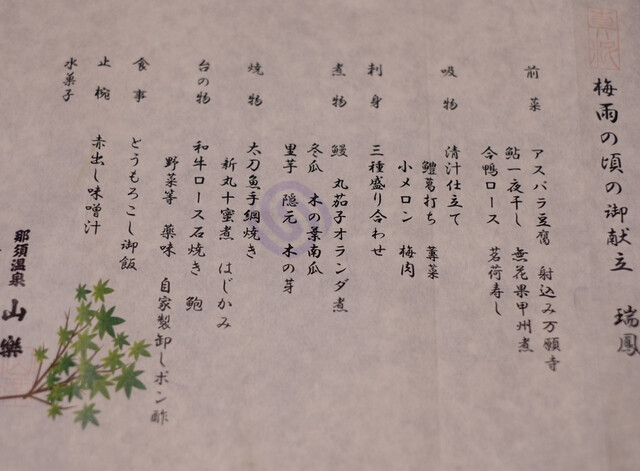 梅雨の頃の御献立　瑞鳳
前菜　アスパラ豆腐　射込み万願寺
鮎一夜干し　無花果甲州煮
合鴨ロース　茗荷寿し
吸物　清汁仕立て
鱧葛打ち　蓴菜
小メロン　梅肉
刺身　三種盛り合わせ
煮物　鰻　丸茄子オランダ煮
冬瓜　木の葉南瓜
里芋　隠元　木の芽
焼物　太刀魚手綱焼き
新丸十蜜煮　はじかみ
台の物　和牛ロース石焼き　鮑
野菜等　薬味　自家製卸しポン酢
食事　とうもろこし御飯
止椀　赤出し味噌汁
水菓子
那須温泉　山樂